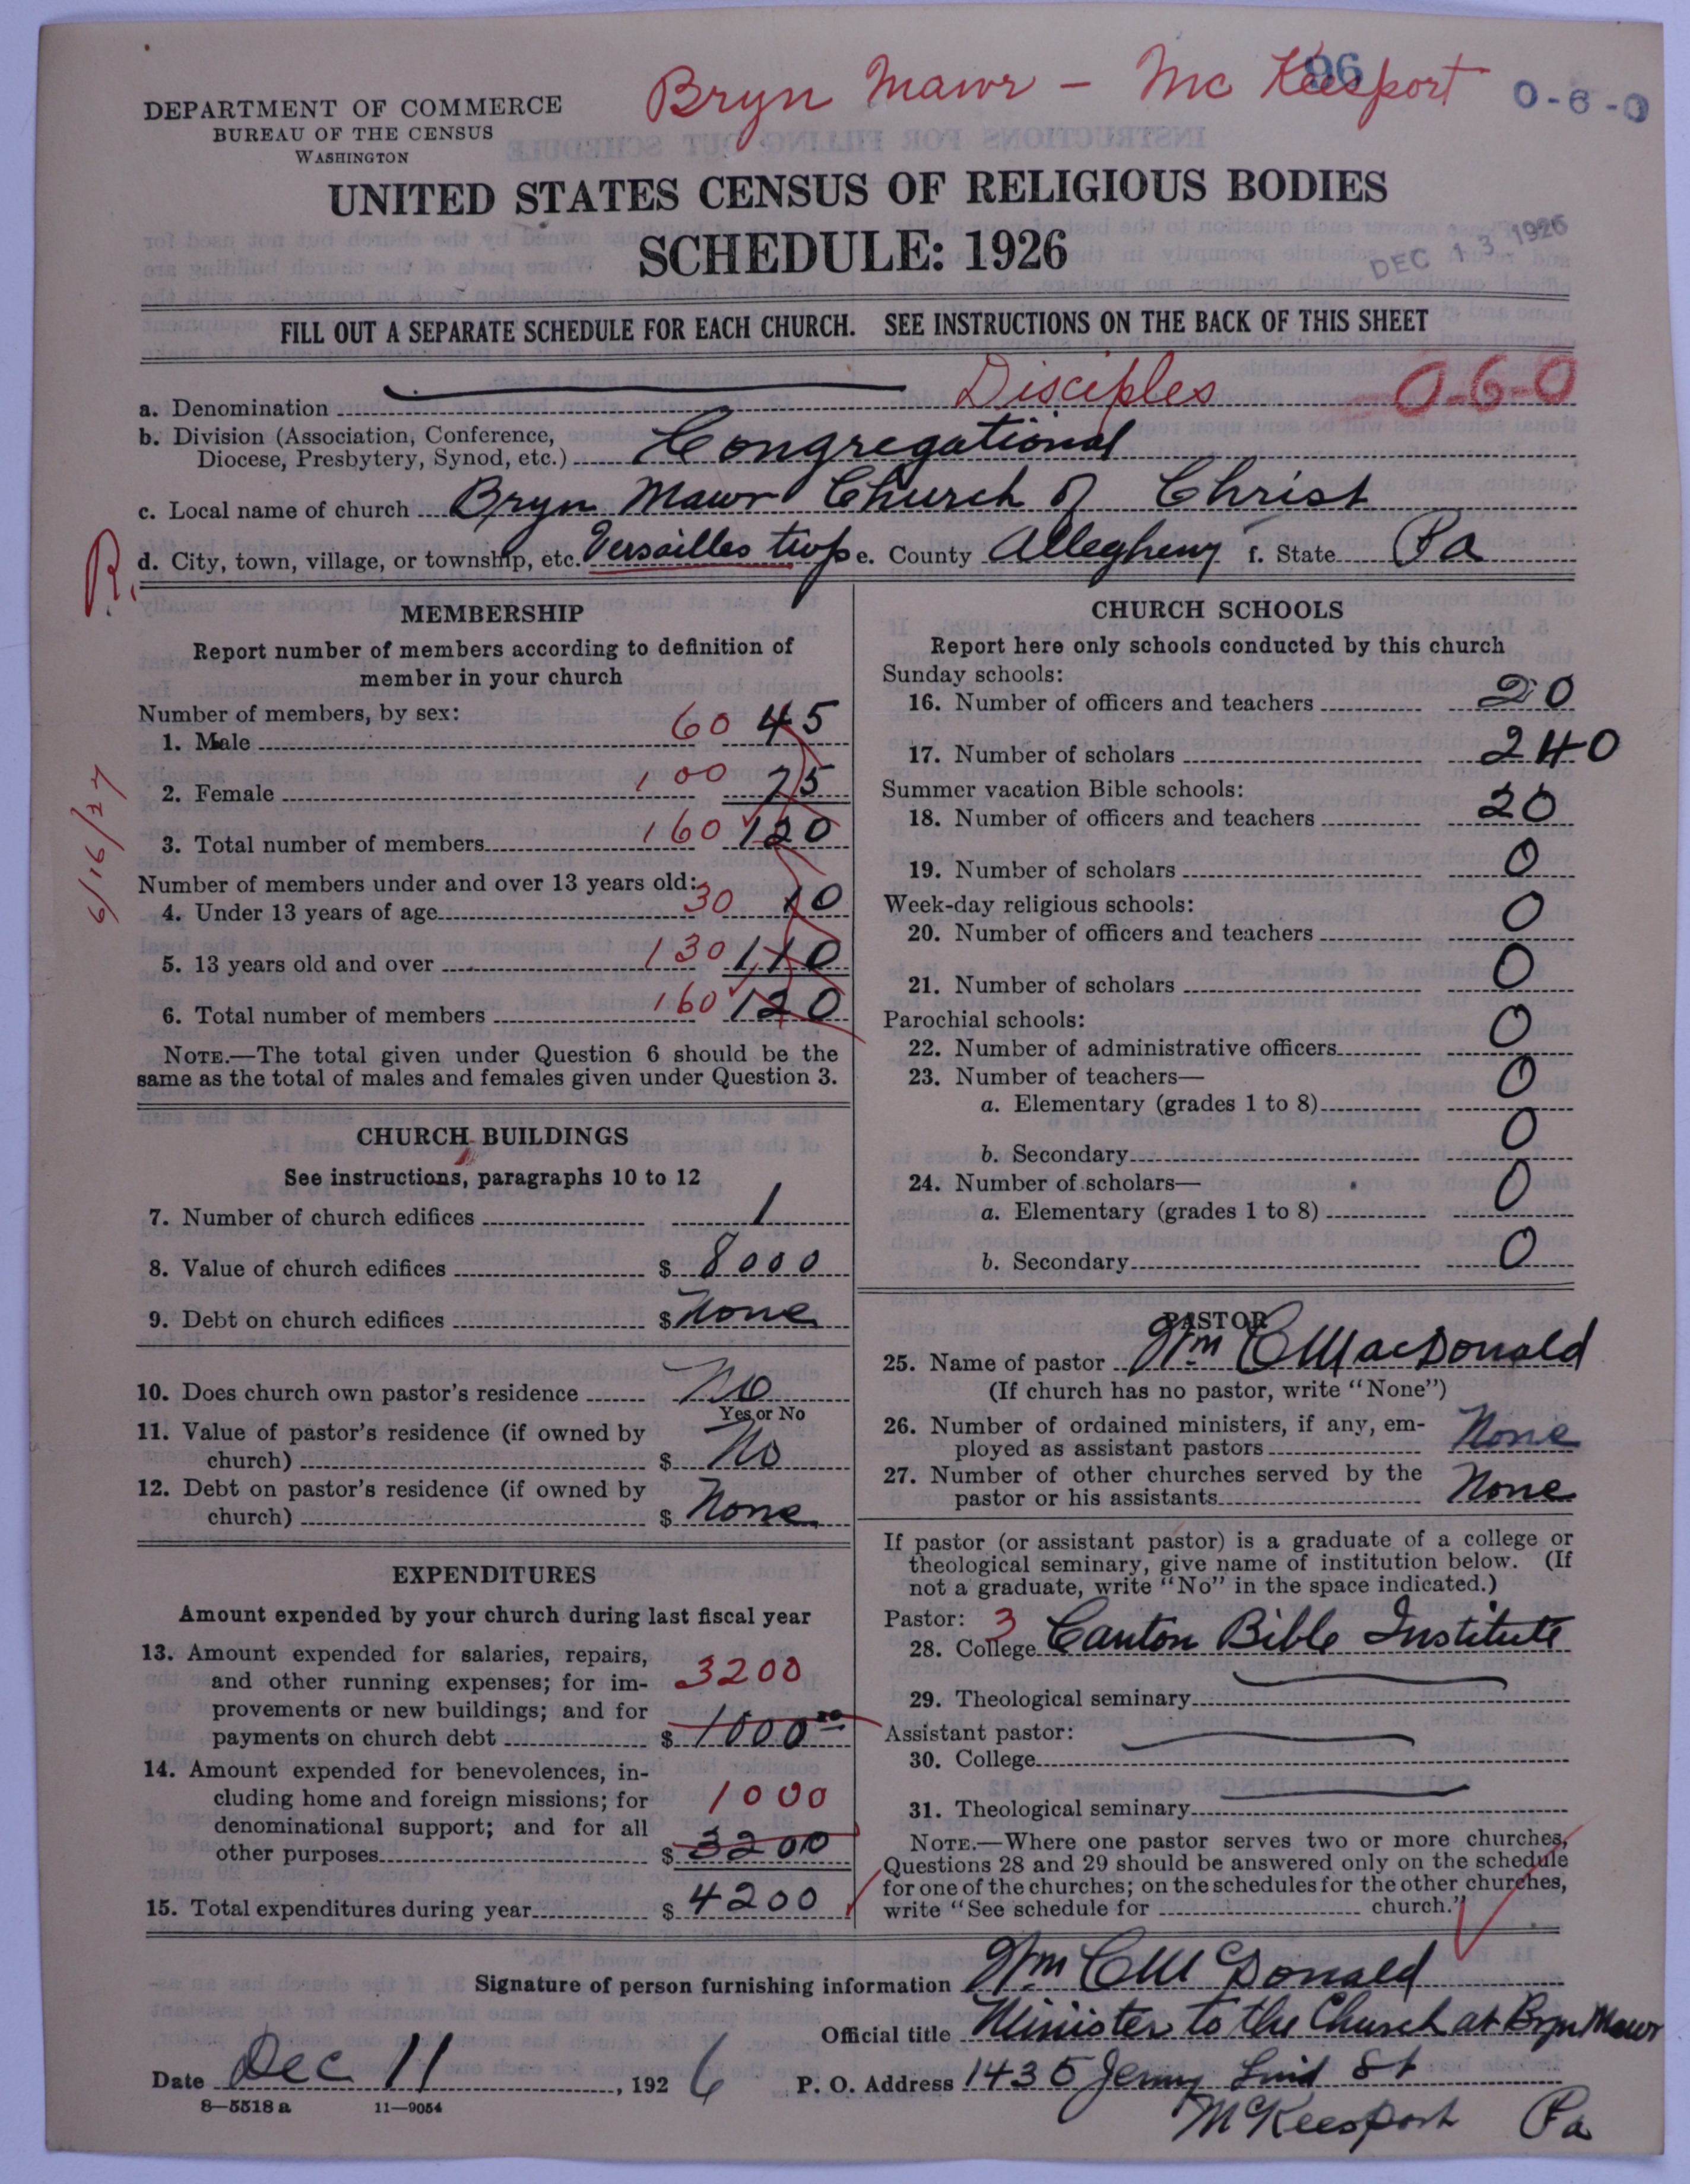 Bryn Mawr - Mc Keesport
96
0-6-0
DEPARTMENT OF COMMERCE
BUREAU OF THE CENSUS
WASHINGTON
UNITED STATES CENSUS OF RELIGIOUS BODIES
SCHEDULE: 1926
DEC 13 1926
FILL OUT A SEPARATE SCHEDULE FOR EACH CHURCH. SEE INSTRUCTIONS ON THE BACK OF THIS SHEET
a. Denomination Disciples 0-6-0
b. Division (Association, Conference,
Diocese, Presbytery, Synod, etc.) Congregational
c. Local name of church Bryn Mawr Church of Christ
R.
d. City, town, village, or township, etc. Versailles twp e. County Allegheny f. State Pa
MEMBERSHIP
Report number of members according to definition of
member in your church
Number of members, by sex:
1. Male 60 45
2. Female 100 75
3. Total number of members 160 120
Number of members under and over 13 years old:
4. Under 13 years of age 30 10
5. 13 years old and over 130 110
6. Total number of members 160 120
6/16/27
NOTE.—The total given under Question 6 should be the
same as the total of males and females given under Question 3.
CHURCH BUILDINGS
See instructions, paragraphs 10 to 12
7. Number of church edifices 1
8. Value of church edifices $ 8000
9. Debt on church edifices $ None
10. Does church own pastor's residence No
Yes or No
11. Value of pastor's residence (if owned by
church) $ No
12. Debt on pastor's residence (if owned by
church) $ None
EXPENDITURES
Amount expended by your church during last fiscal year
13. Amount expended for salaries, repairs,
and other running expenses; for im- 3200
provements or new buildings; and for
payments on church debt $ 1000
14. Amount expended for benevolences, in-
cluding home and foreign missions; for 1000
denominational support; and for all
other purposes $ 3200
15. Total expenditures during year $ 4200
CHURCH SCHOOLS
Report here only schools conducted by this church
Sunday schools:
16. Number of officers and teachers 20
17. Number of scholars 240
Summer vacation Bible schools:
18. Number of officers and teachers 20
19. Number of scholars 0
Week-day religious schools:
20. Number of officers and teachers 0
21. Number of scholars 0
Parochial schools:
22. Number of administrative officers 0
23. Number of teachers—
a. Elementary (grades 1 to 8) 0
b. Secondary 0
24. Number of scholars—
a. Elementary (grades 1 to 8) 0
b. Secondary 0
PASTOR
25. Name of pastor Wm C MacDonald
(If church has no pastor, write "None")
26. Number of ordained ministers, if any, em-
ployed as assistant pastors None
27. Number of other churches served by the
pastor or his assistants None
If pastor (or assistant pastor) is a graduate of a college or
theological seminary, give name of institution below. (If
not a graduate, write "No" in the space indicated.)
Pastor: 3
28. College Canton Bible Institute
29. Theological seminary
Assistant pastor:
30. College
31. Theological seminary
NOTE.—Where one pastor serves two or more churches,
Questions 28 and 29 should be answered only on the schedule
for one of the churches; on the schedules for the other churches,
write "See schedule for church."
Signature of person furnishing information Wm C McDonald
Official title Minister to the Church at Bryn Mawr
Date Dec 11, 1926 P. O. Address 1435 Jenny Lind St
McKeesport Pa
8—5518 a 11—9054